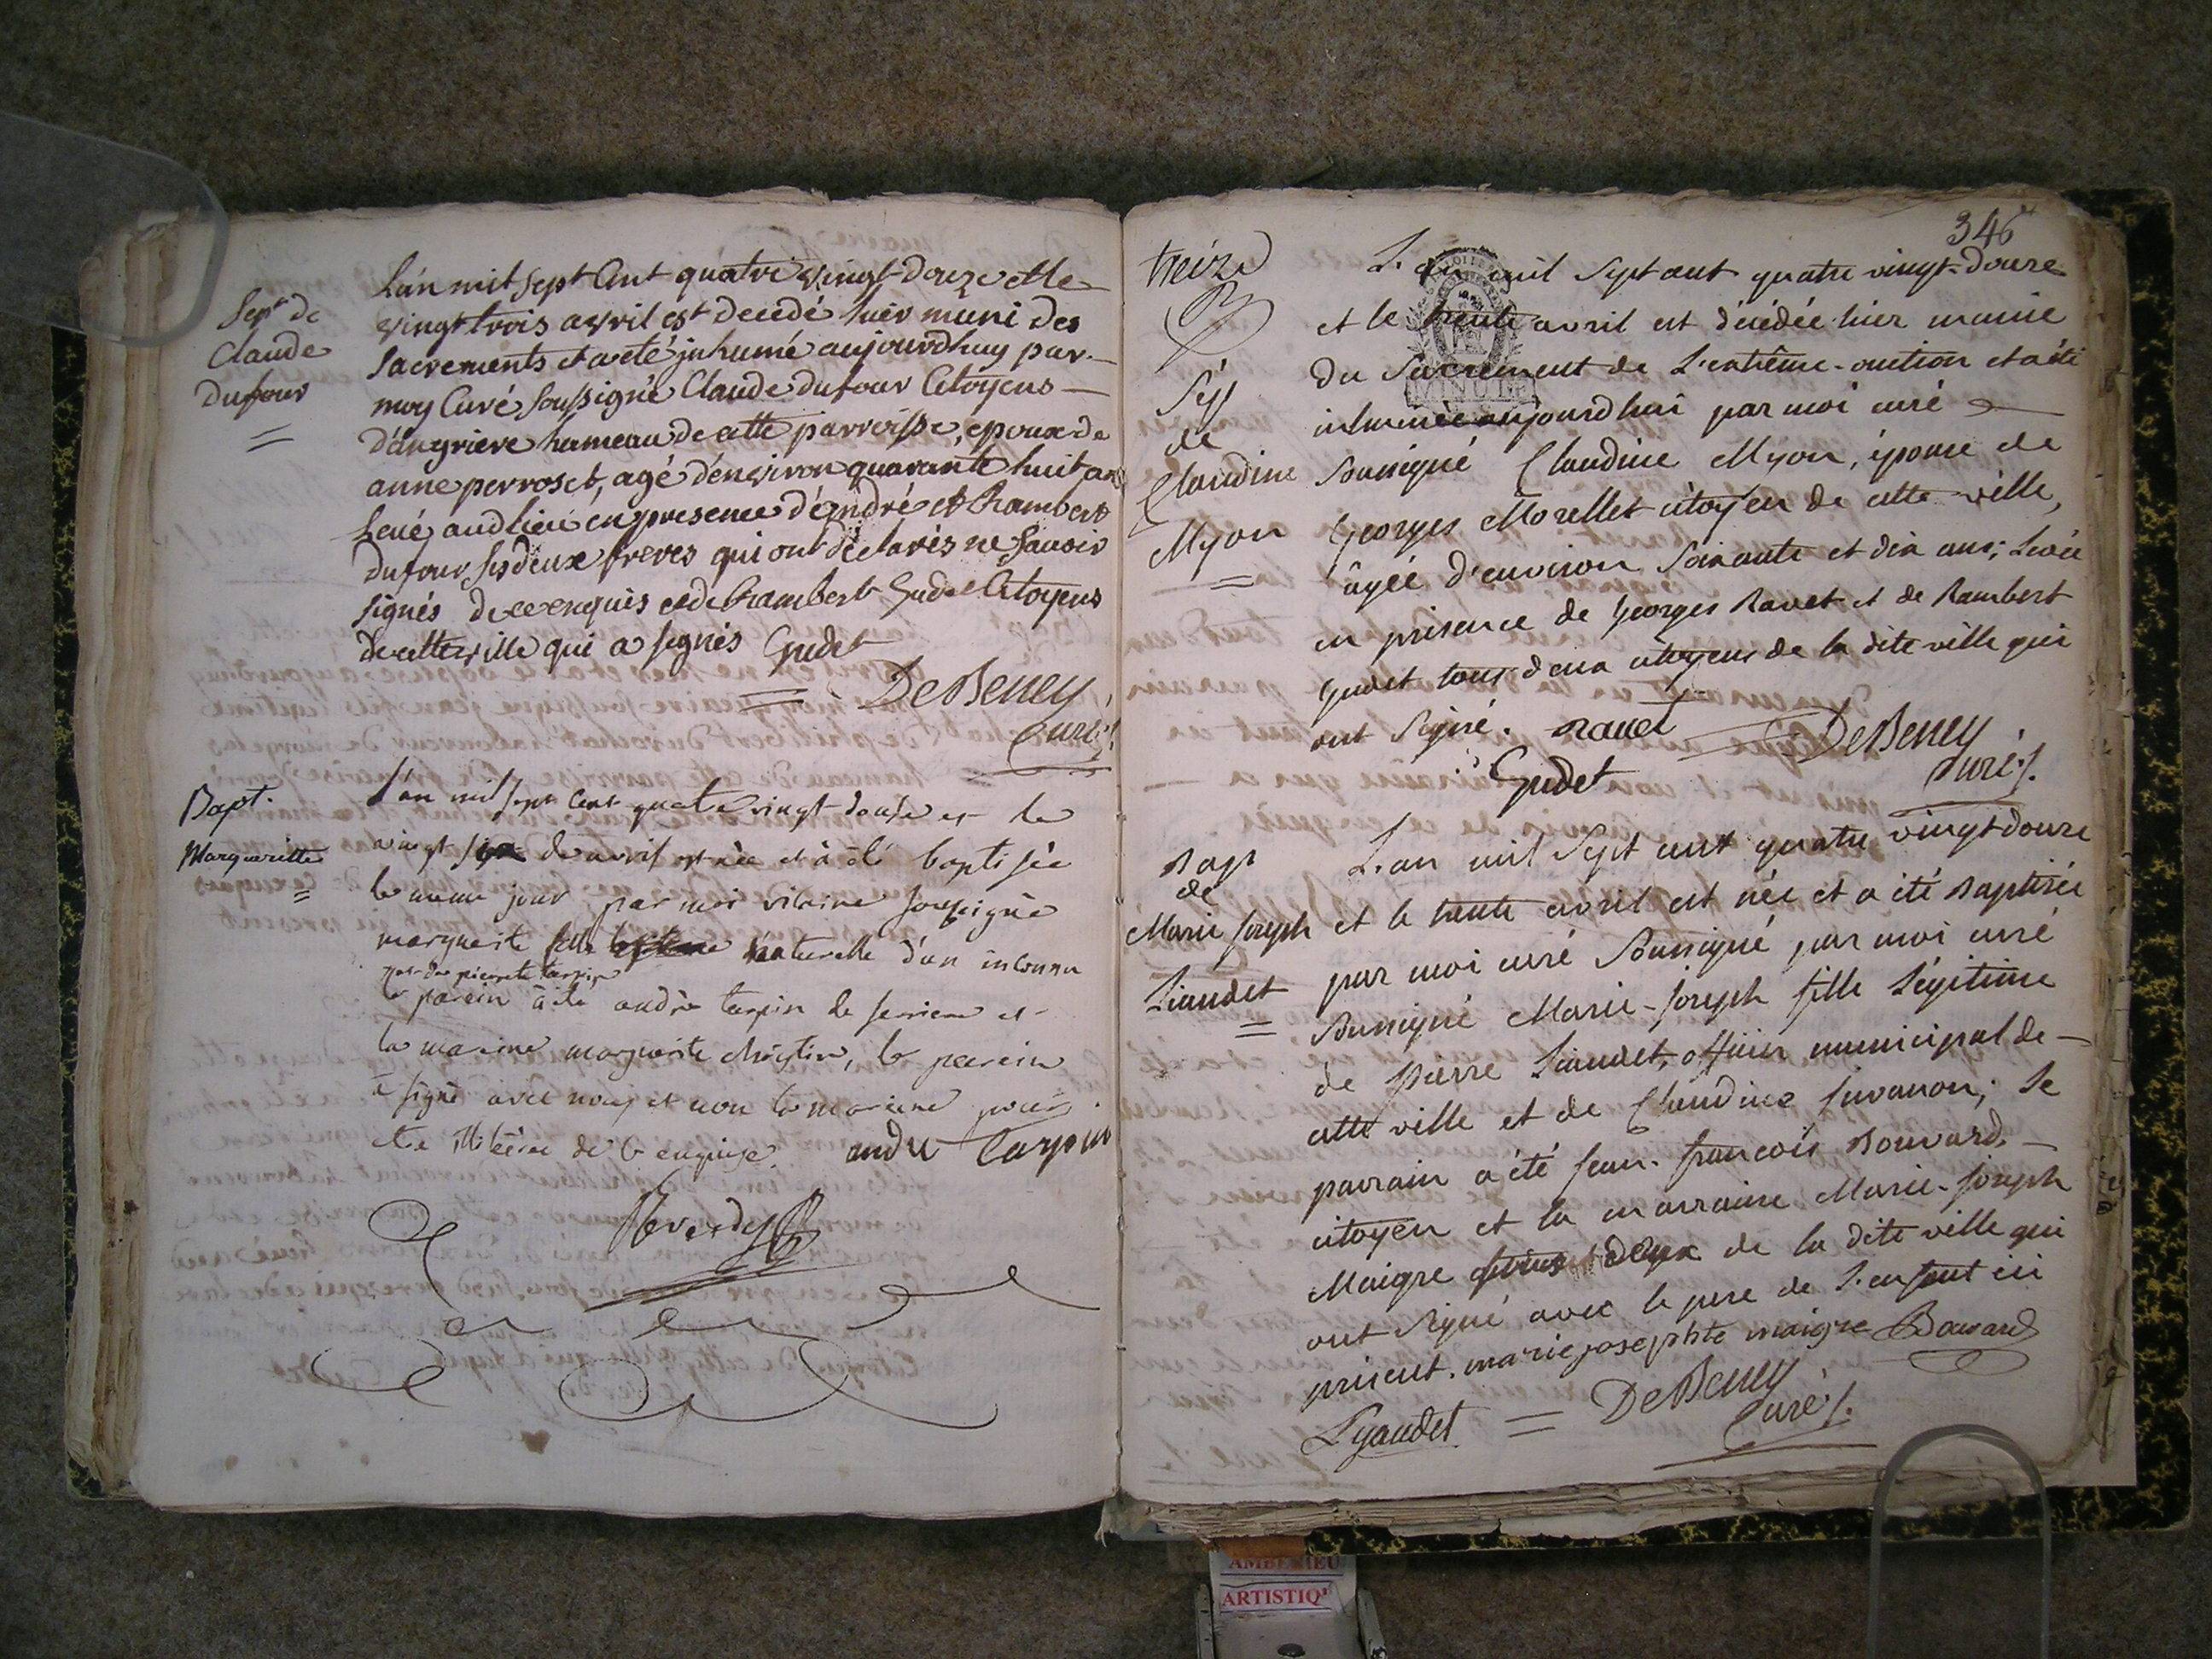 Sept. de
Claude
Dufour
L'an mil sept cent quatre vingt douze et le
vingt trois avril est decedé hier muni des
sacrements et a eté jnhumé aujourdhuy par
moy Curé soussigné Claude dufour Citoyens
d'angrieve hameau de cette parroisse, epoux de
anne perroset, agé d'environ quarante huit ans
Levé audlieu en presence d'andré et Rambert
dufour ses deux freres qui ont déclarés ne savoir
signés de ce enquis et de Rambert Gudet Citoyens
de cette ville qui a signés Gudet
DeBeney
Curé
Bapt.
Margueritte
L'an mil sept cent quatre vingt douse et le
vingt six de avril est née et à été baptisée
le meme jour par moi vicaire soussigné
marguerite fille naturelle d'un inconnu
et de pierrete tarpin
le parein à été andré tarpin de et
la mareine marguerite christin, le parein
à signé avec nous et non la mareine pour
etre illiterée de ce enquise. andré tarpin
Reverdy
346
treize
Sep
de
Claudine
Myon
L'an mil sept cent quatre vingt-douze
et le trente avril est décédée hier munie
du Sacrement de L'extrême-onction et a été
inhumée aujourd'hui par moi curé
soussigné Claudine Myon, épouse de
Georges Morellet citoyen de cette ville,
âgée d'environ soixante et dix ans; Levée
en présence de Georges Ravet et de Rambert
Gudet tous deux citoyens de la dite ville qui
ont signé. ravet DeBeney
Gudet Curé
Bap
de
Marie Joseph
Liaudet
L'an mil sept cent quatre vingt douze
et le trente avril est née et a été Baptisée
par moi curé soussigné par moi curé
soussigné Marie-Joseph fille Légitime
de Pierre Liaudet, officier municipal de
cette ville et de Claudine Juvanon; Le
parrain a été Jean-françois Bouvard
citoyen et la marraine Marie-Joseph
Maigre tous deux de la dite ville qui
ont signé avec le pere de L'enfant ici
présent. marie josephte maigre Bouvard
Lyaudet = DeBeney
Curé
AMBERIEU
ARTISTIQ'